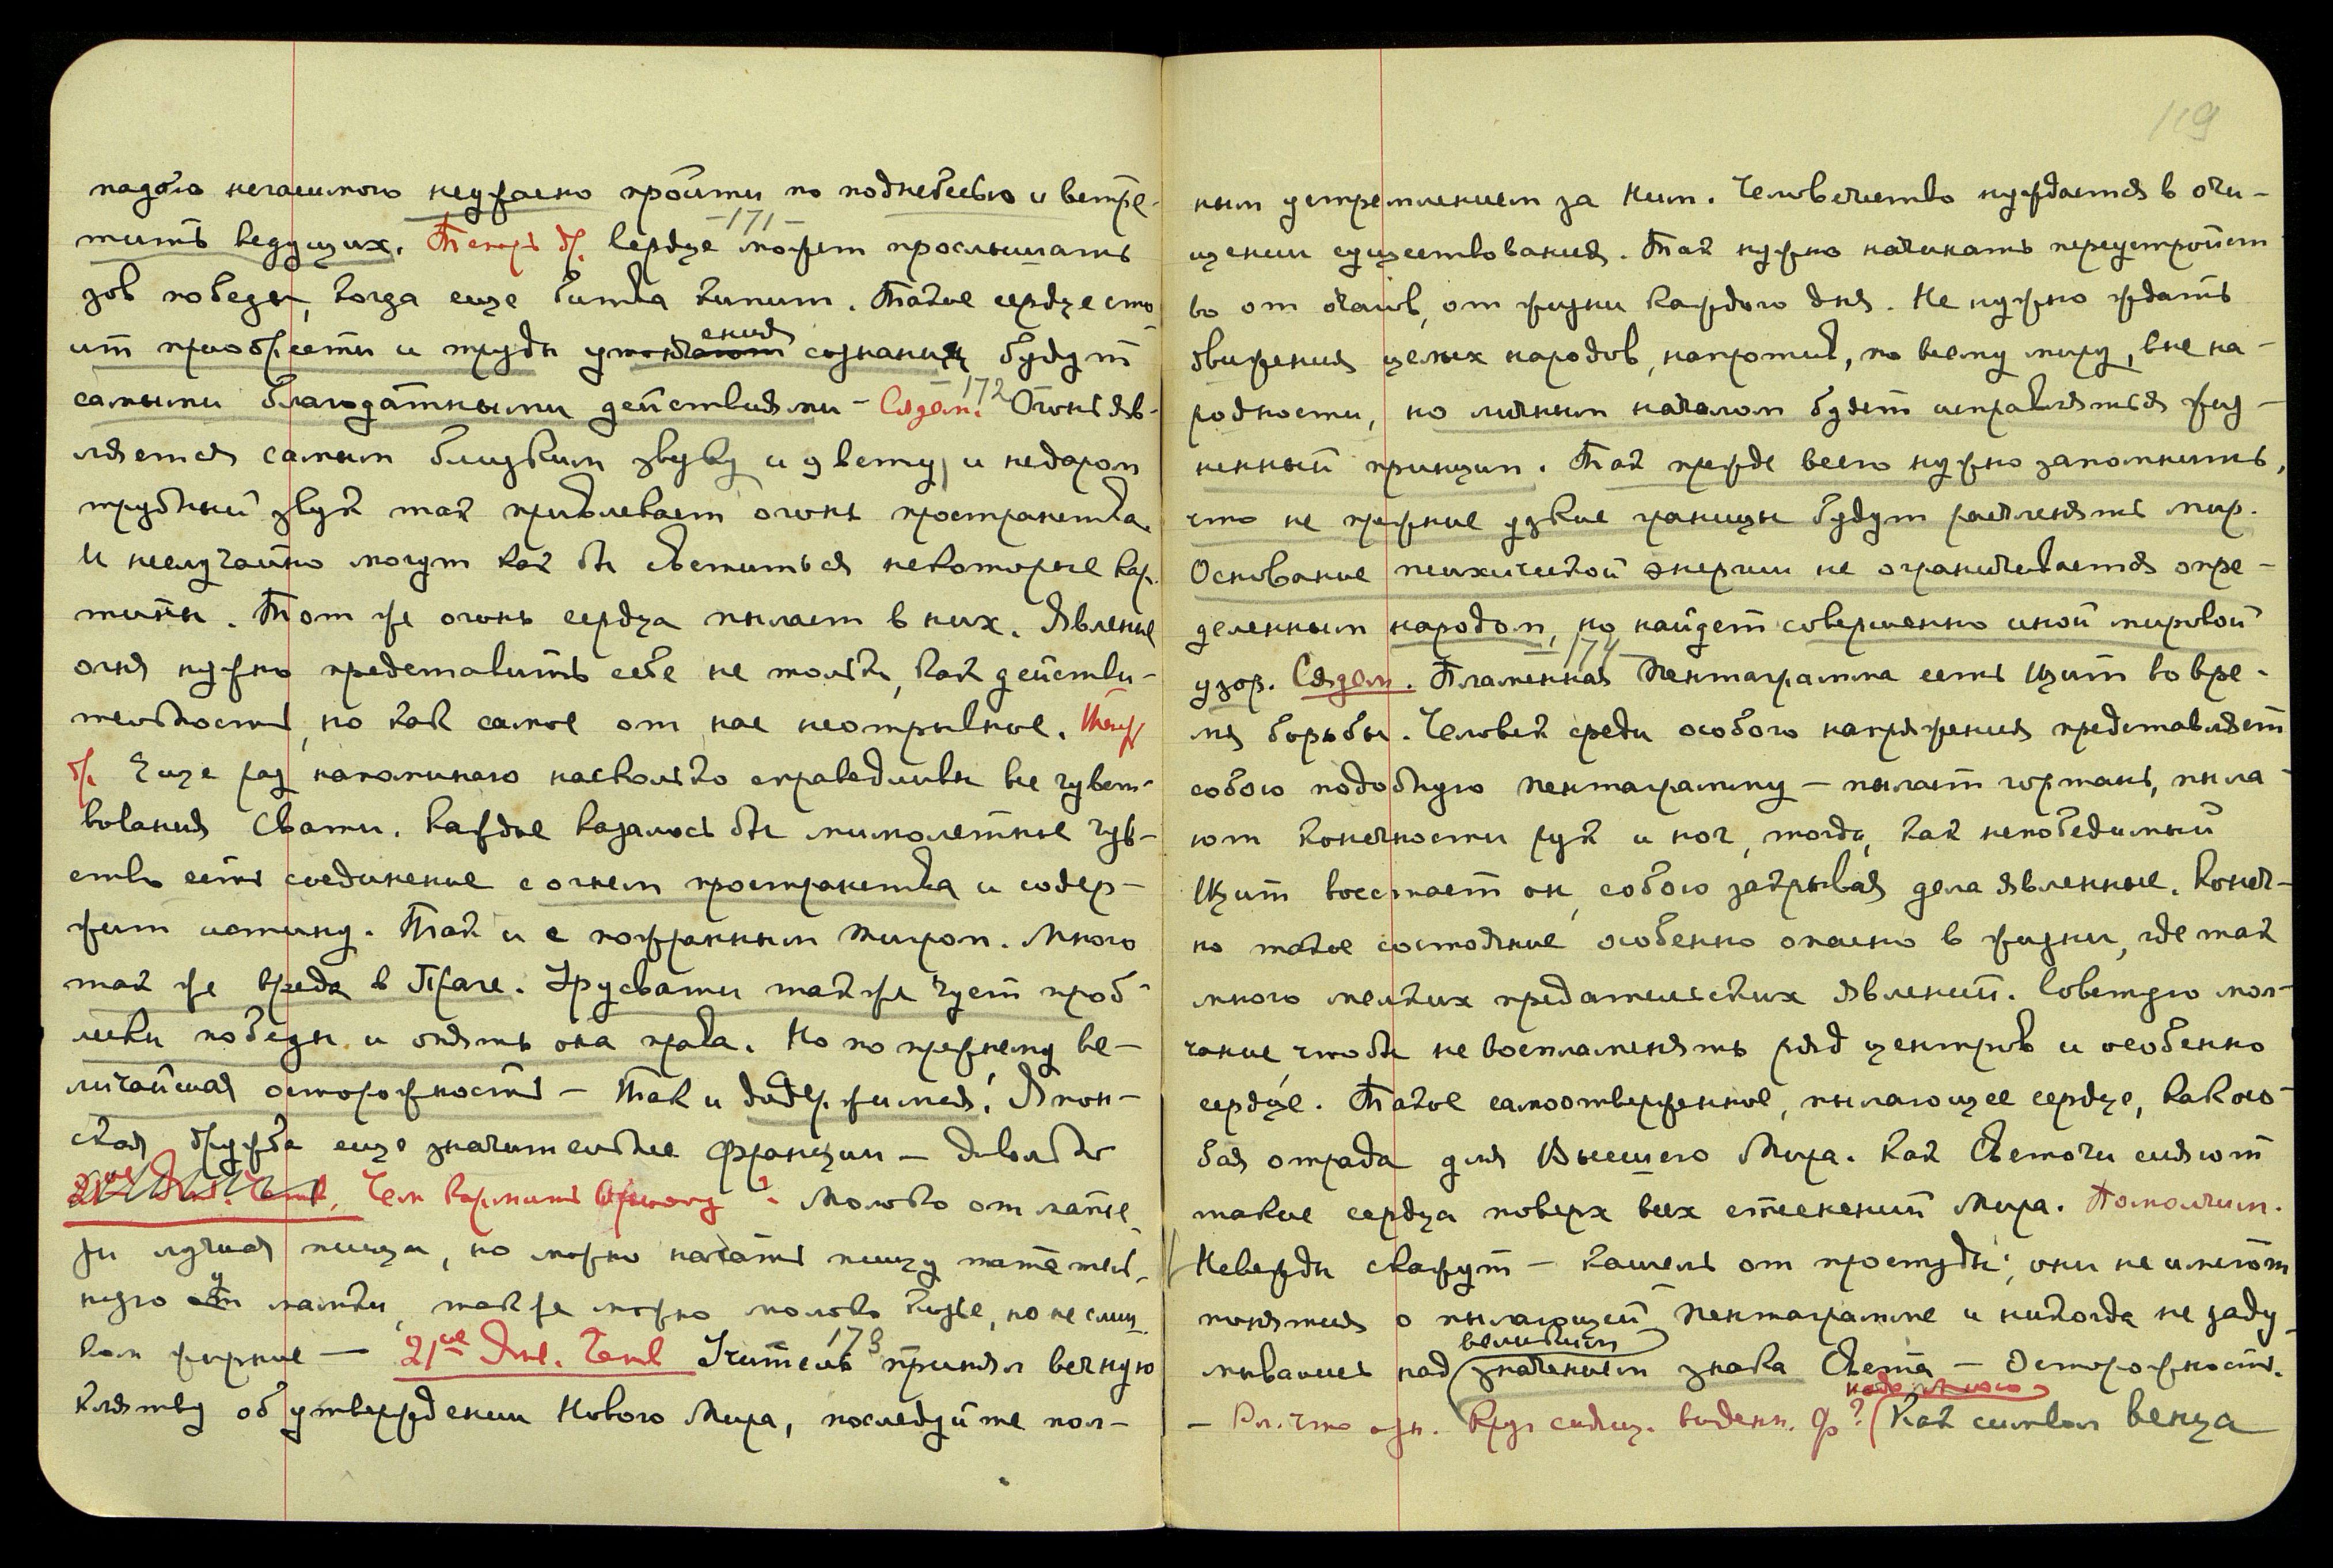 падою негасимого неужасно пройти по поднебесью и встре-
тить ведущих. -171- Теперь др. Сердце может прослышать
зов победы, когда еще битва кипит. Такое сердце сто
ит приобрести и труды утончения сознания будут
самыми благодатными действиями - Сядем. 172 Огонь яв-
ляется самым близким звуку и цвету, и недаром
трубный звук так привлекает огонь пространства.
И неслучайно могут как бы светиться некоторые кар-
тины. Тот же огонь сердца пылает в них. Явление
огня нужно представить себе не только, как действи-
тельность, но как самое от нас неотрывное. Теперь
др. Еще раз напоминаю насколько справедливы все чувст-
вования Свати. Каждое казалось бы мимолетное чув-
ство есть соединение с огнем пространства и содер-
жит истину. Так и с пожранным тигром. Много
так же вреда в Праге. Урусвати также чует проб-
лески победы и опять она права. Но по прежнему ве-
личайшая осторожность - Так и додержимся! Япон-
ская дружба еще значительнее Франции - Довольно
21ое Янв. Четв. Чем кормить ? Молоко от
ри лучшая пища, но можно начать пищу
ную от мамки, также можно молоко козье, но не слиш-
ком жирное — 21ое Янв. Четв 173 Учитель принял вечную
клятву об утверждении Нового Мира, последуйте пол-
119
ным устремлением за Ним. Человечество нуждается в очи-
щении существования. Так нужно начинать переустройст
во от очагов, от жизни каждого дня. Не нужно ждать
движения целых народов, напротив, по всему миру, вне на-
родности, но личным началом будет исправляться жиз-
ненный принцип. Так прежде всего нужно запомнить,
что не прежние узкие границы будут расчленять мир.
Основание психической энергии не ограничивается опре-
деленным народом, но найдет совершенно иной мировой
узор. Сядем. -174- Пламенная Пентаграмма есть Щит во вре-
мя борьбы. Человек среди особого напряжения представляет
собою подобную пентаграмму - пылает гортань, пыла-
ют конечности рук и ног, тогда, как непобедимый
Щит восстает он, собою закрывая дела явленные. Конеч-
но такое состояние особенно опасно в жизни, где так
много мелких предательских явлений. Советую мол-
чание, чтобы не воспламенять ряд центров и особенно
сердце. Такое самоотверженное, пылающее сердце, какого-
бая отрада для Высшего Мира. Как Светочи сияют
такие сердца поверх всех стеснений Мира. Помолчим.
Невежды скажут - кашель от простуды; они не имеют
понятия о пылающей Пентаграмме и никогда не заду-
мывались над великим значением знака Света - Осторожность.
- Вл. что озн. Круг сияющ. виденн. Ф? (Как символ венца